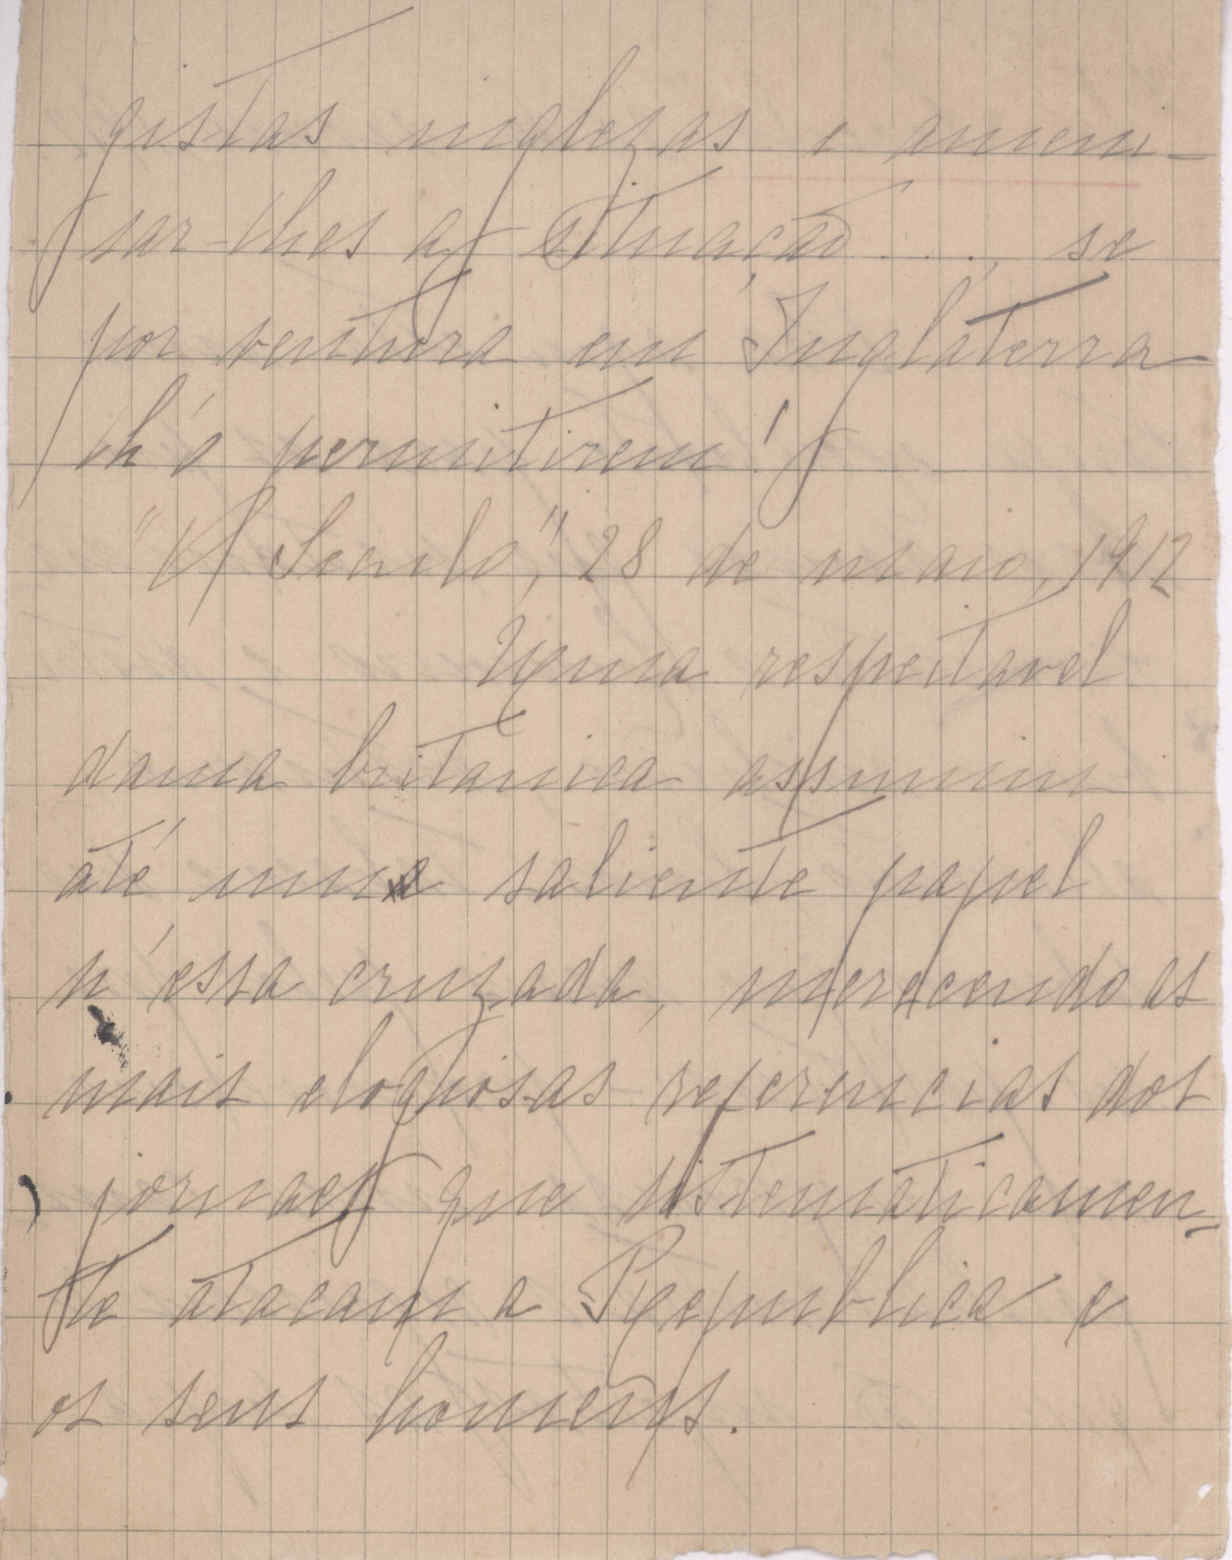 gistas inglezas e ameni-
sar-lhes a situação..., se
por ventura em Inglaterra
lh'o permitirem!
"O Seculo", 28 de maio, 1912
Uma respeitavel
dama britanica assumiu
até um saliente papel
n'essa cruzada, merecendo as
mais elogiosas referencias dos
jornaes que sistematicamen-
te atacam a Republica e
os seus homens.